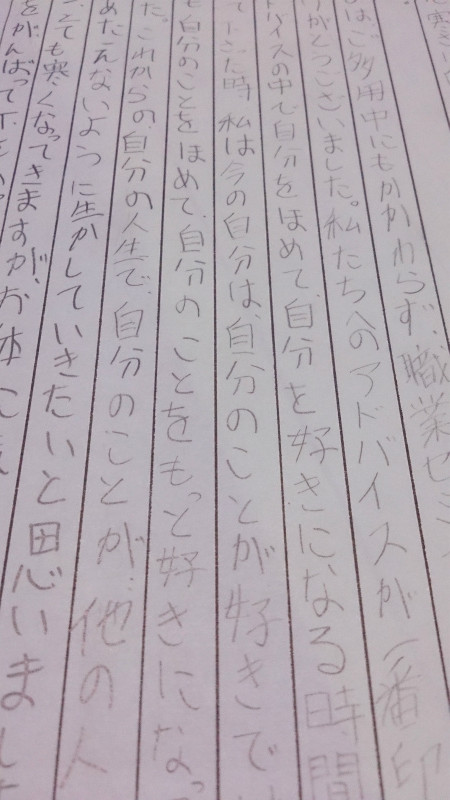 はご多用中にもかかわらず、職業セ
りがとうございました。私たちへのアドバイスが一番印
ドバイスの中で自分をほめて、自分を好きになる時間
て下さた時、私は今の自分は、自分のことが好きで
も自分のことをほめて、自分のことをもっと好きになっ
た。これからの、自分の人生で、自分のことが、他の人
ないように生かしていきたいと思いました
とても寒くなってきますが、お体に
をがんばって下さい。